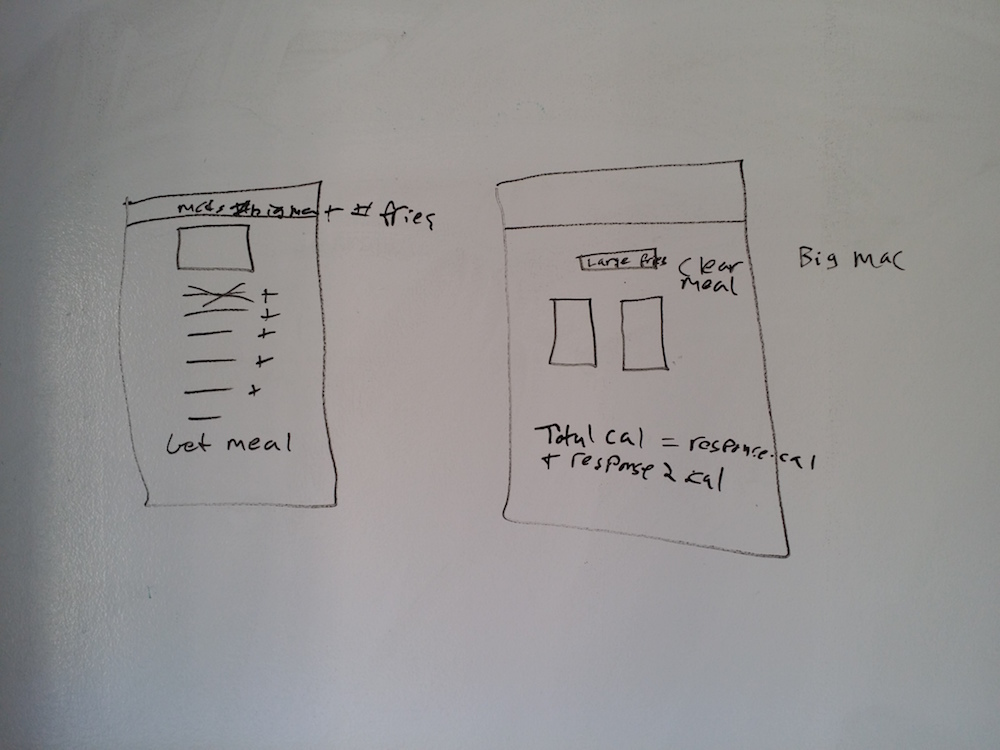 mcds #bigmac + # fries
+
+
+
+
+
Get meal
Large fries
Clear
meal
Big Mac
Total cal = response.cal
+ response 2 cal